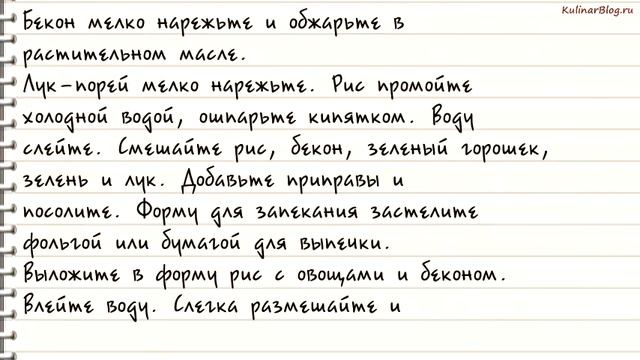 KulinarBlog.ru
Бекон мелко нарежьте и обжарьте в
растительном масле.
Лук-порей мелко нарежьте. Рис промойте
холодной водой, ошпарьте кипятком. Воду
слейте. Смешайте рис, бекон, зеленый горошек,
зелень и лук. Добавьте приправы и
посолите. Форму для запекания застелите
фольгой или бумагой для выпечки.
Выложите в форму рис с овощами и беконом.
Влейте воду. Слегка размешайте и